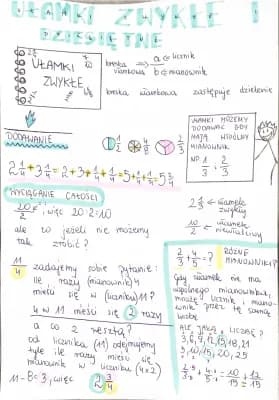 UŁAMKI ZWYKŁE I
DZIESIĘTNE
UŁAMKI
ZWYKŁE
kreska → a ← licznik
ułamkowa b ← mianownik
kreska ułamkowa zastępuje dzielenie
DODAWANIE
1/2 4/5 2/3
UŁAMKI MOŻEMY
DODAWAĆ GDY
MAJĄ WSPÓLNY
MIANOWNIK
NP. 1/3 + 2/3
2 1/4 + 3 1/4 = 2 + 3 + 1/4 + 1/4 =
WYCIĄGANIE CAŁOŚCI
20/2, więc 20:2=10
ale co jeżeli nie możemy
tak zrobić?
ułamek
zwykły
10/2 ← ułamek
niewłaściwy
11/4 zadajemy sobie pytanie:
ile razy (mianownik) 4
mieści się w (liczniku) 11?
4 w 11 mieści się 2 razy
a co z resztą?
od licznika (11) odejmujemy
tyle ile razy mieści się
mianownik w liczniku (4×2)
11-8=3, więc 2 3/4
2/3 + 4/5 = ?
RÓŻNE
MIANOWNIKI?
Gdy ułamek nie ma
wspólnego mianownika,
możesz licznik i miano-
wnik przez tę samą
liczbę
ALE JAKĄ LICZBĘ?
3, 6, 9, 12, 15, 18, 21
5, 10, 15, 20, 25
10/15 + 12/15